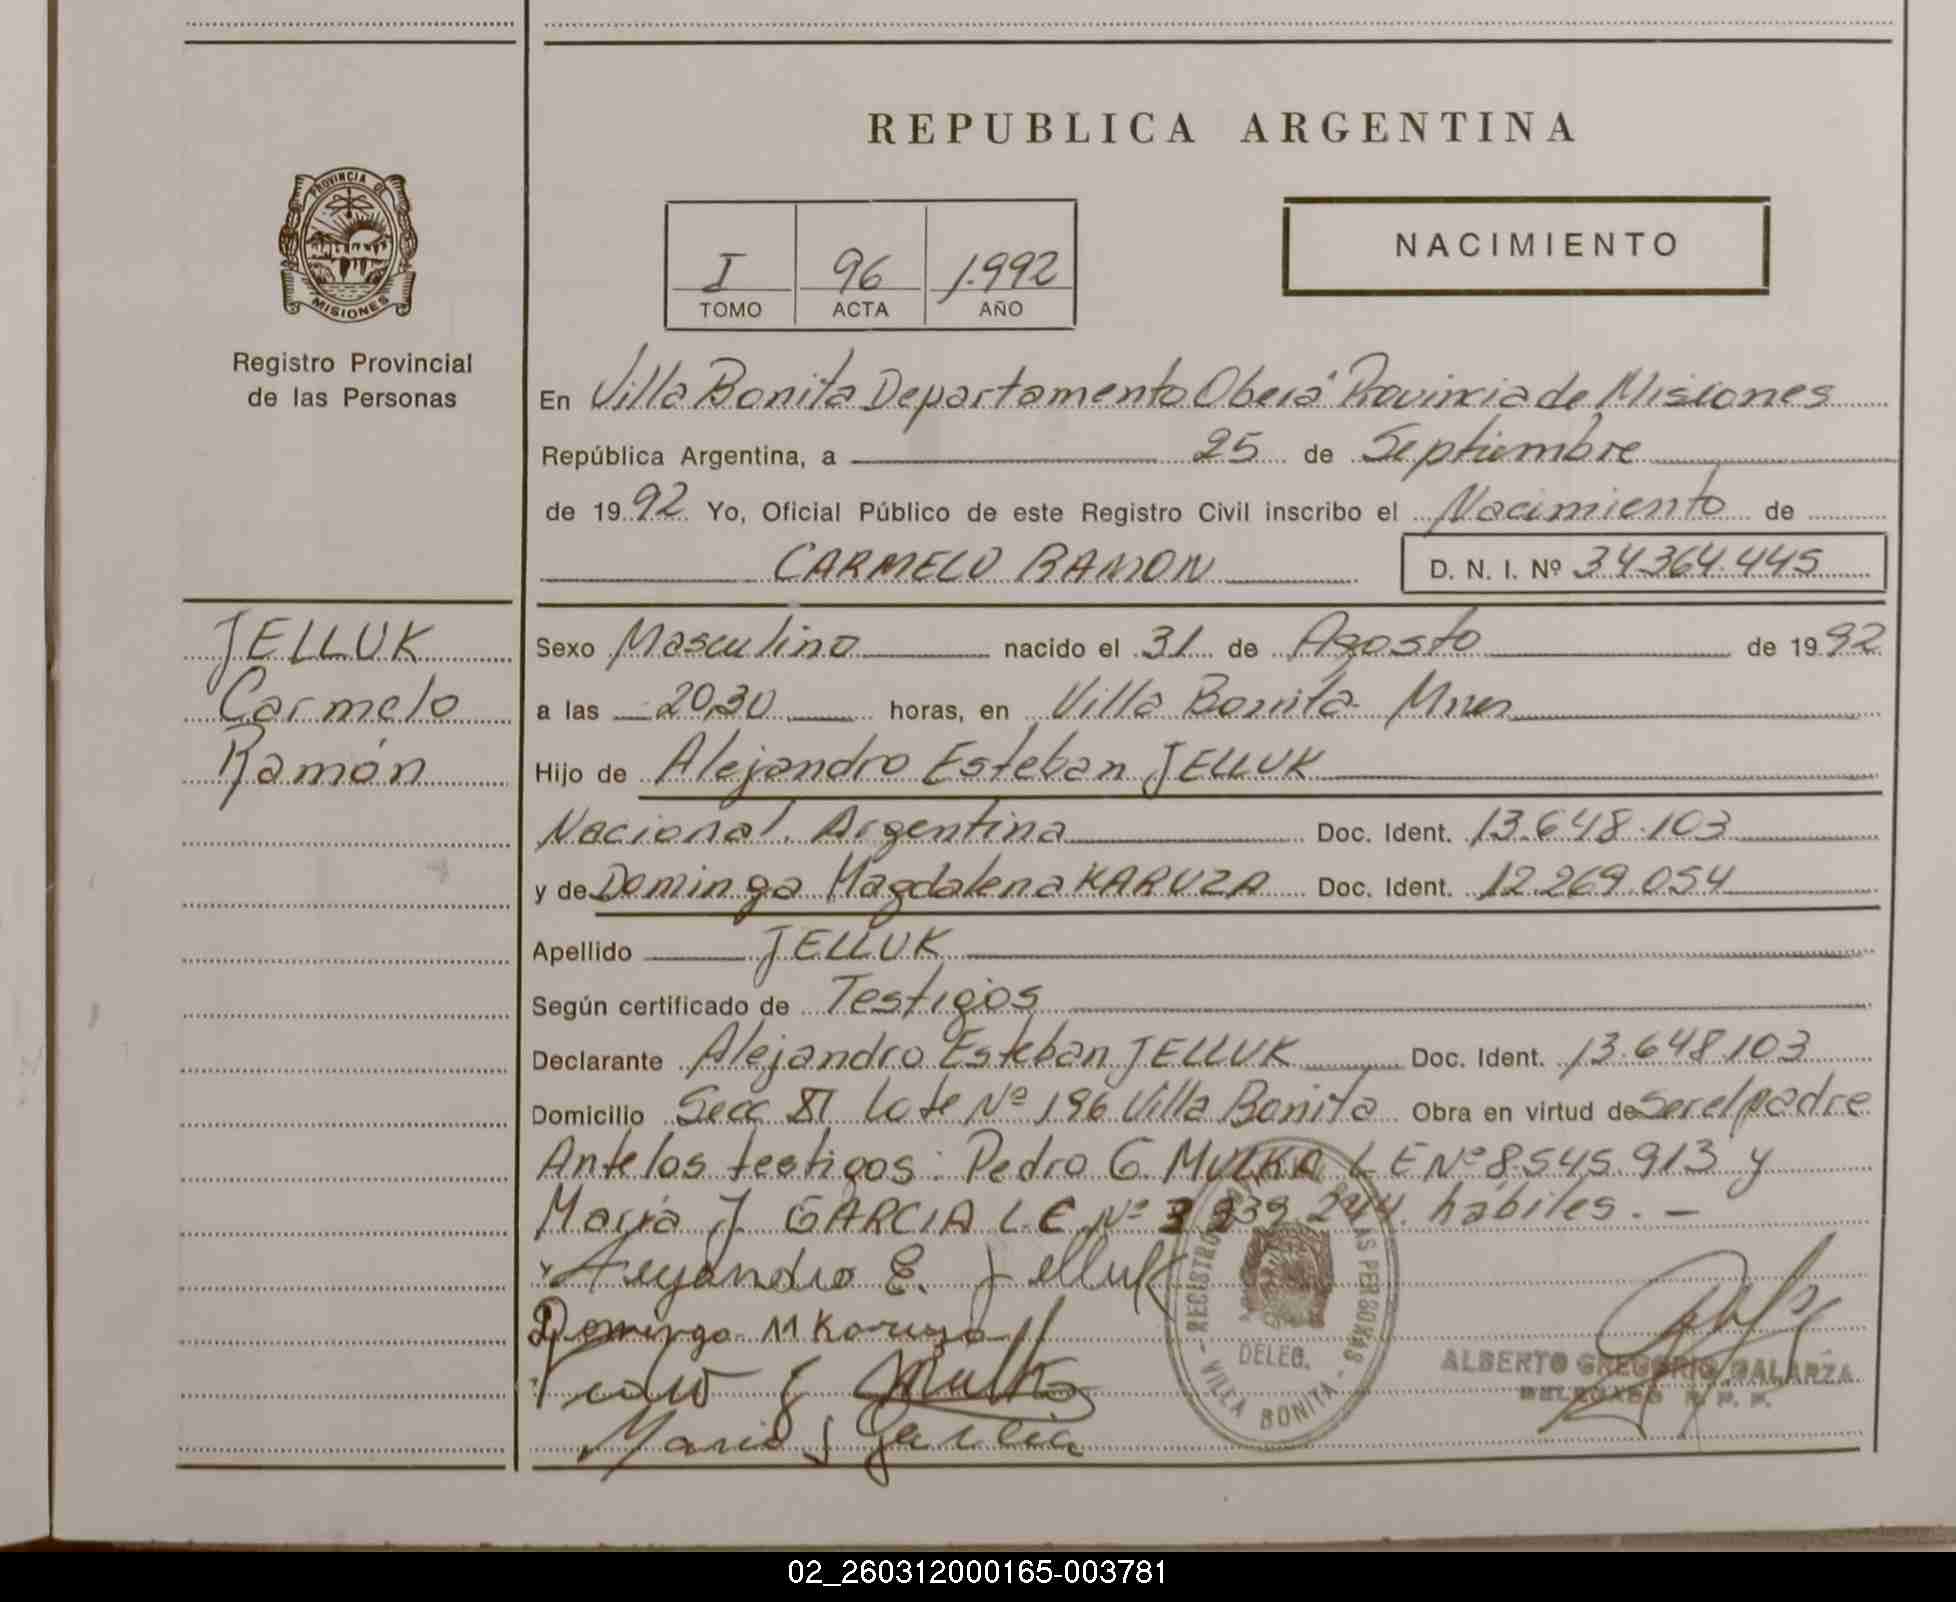 REPUBLICA ARGENTINA
PROVINCIA DE
MISIONES
Registro Provincial
de las Personas
NACIMIENTO
I 96 1.992
TOMO ACTA AÑO
En Villa Bonita Departamento Oberá Provincia de Misiones
República Argentina, a 25 de Septiembre
de 1992 Yo, Oficial Público de este Registro Civil inscribo el Nacimiento de
CARMELO RAMON D. N. I. Nº 34364.445
JELLUK
Carmelo
Ramón
Sexo Masculino nacido el 31 de Agosto de 1992
a las 20,30 horas, en Villa Bonita Mnes
Hijo de Alejandro Esteban JELLUK
Nacional. Argentina Doc. Ident. 13.648.103
y de Dominga Magdalena KARUZA Doc. Ident. 12.269.054
Apellido JELLUK
Según certificado de Testigos
Declarante Alejandro Esteban JELLUK Doc. Ident. 13.648.103
Domicilio Secc Lote Nº 196 Villa Bonita Obra en virtud de ser el padre
Ante los testigos: Pedro G. MULKA L E Nº 8.545.913 y
María J. GARCIA L.E. Nº 239 244 hábiles. -
Alejandro E. Jelluk
Dominga M Karuza
Pedro G Mulka
Maria J Garcia
REGISTRO LAS PERSONAS
DELEG.
- VILLA BONITA -
ALBERTO GREGORIO GALARZA
DELEGADO R. P. P.
02_260312000165-003781